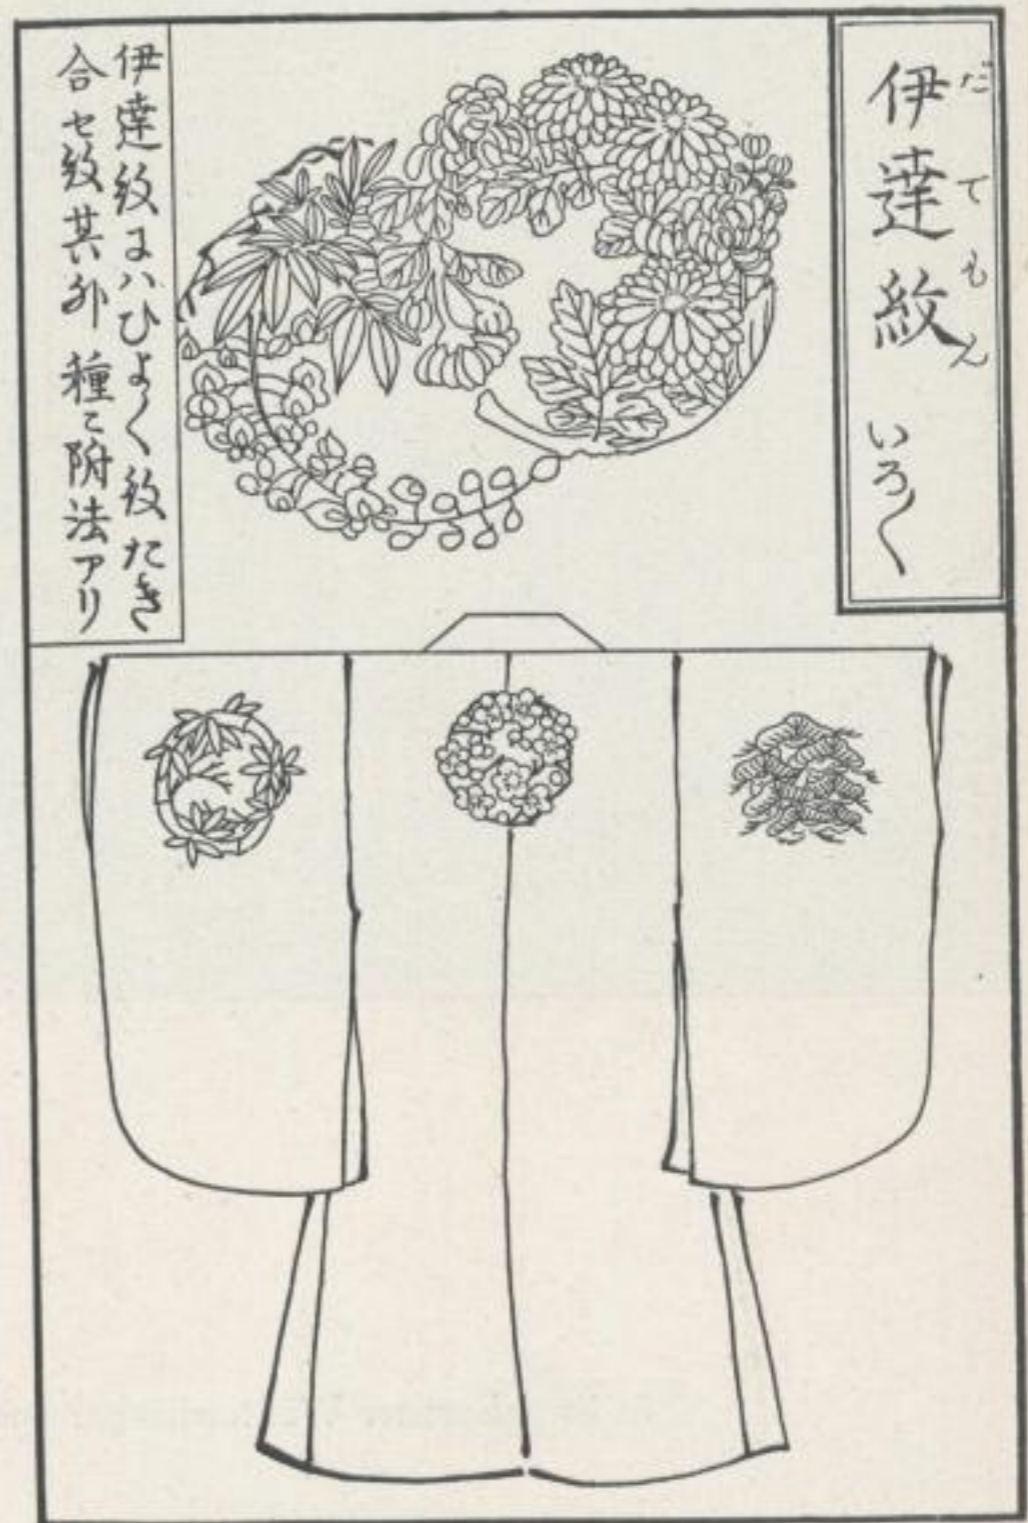 伊達紋 いろ〱
だてもん
伊達紋にハひよく紋たき
合セ紋其外種〻附法アリ